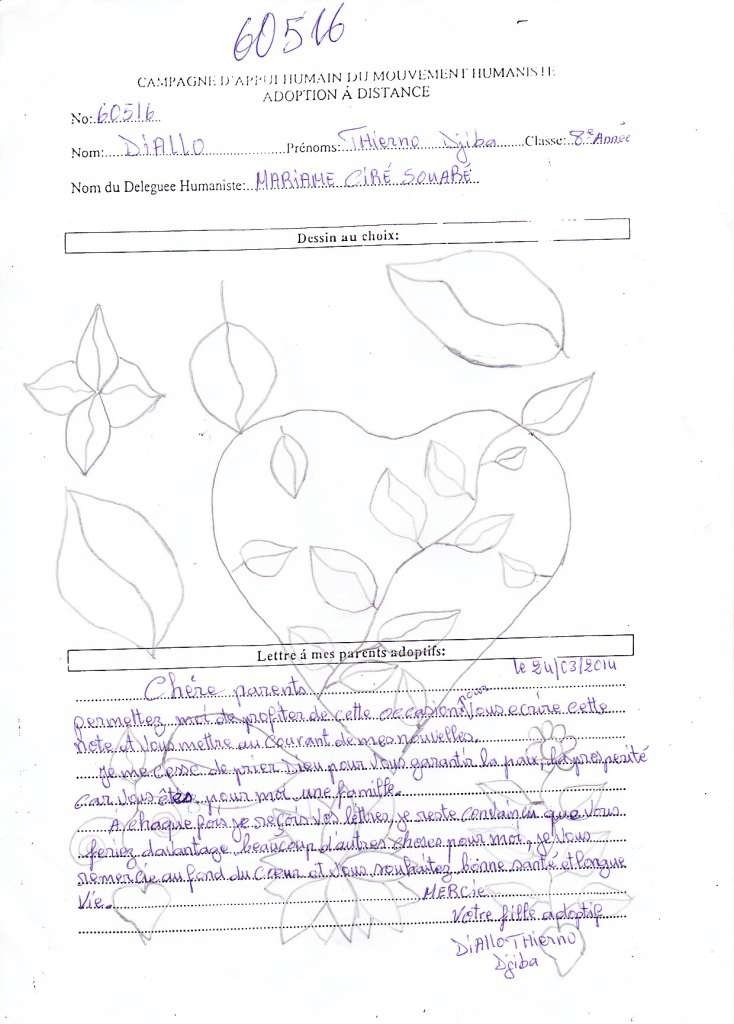 60516
CAMPAGNE D'APPUI HUMAIN DU MOUVEMENT HUMANISTE
ADOPTION Á DISTANCE
No: 60516
Nom: DiALLO Prénoms: THierno Djiba Classe: 8e Année
Nom du Deleguee Humaniste: MARiAME CiRÉ SOUARÉ
Dessin au choix:
Lettre á mes parents adoptifs:
le 24/03/2014
Chére parents
permettez moi de profiter de cette occasion pour vous ecrire cette
note et vous mettre au courant de mes nouvelles.
Je me cesse de prier Dieu pour vous garantir la paix, la prosperité
car vous êtes pour moi une famille.
A chaque fois je reçois vos lettres, je reste convaincu que vous
feriez davantage beaucoup d'autres choses pour moi, je vous
remercie au fond du cœur et vous souhaitez bonne santé et longue
vie. MERCie
Votre fille adoptif
DiAllo THierno
Djiba